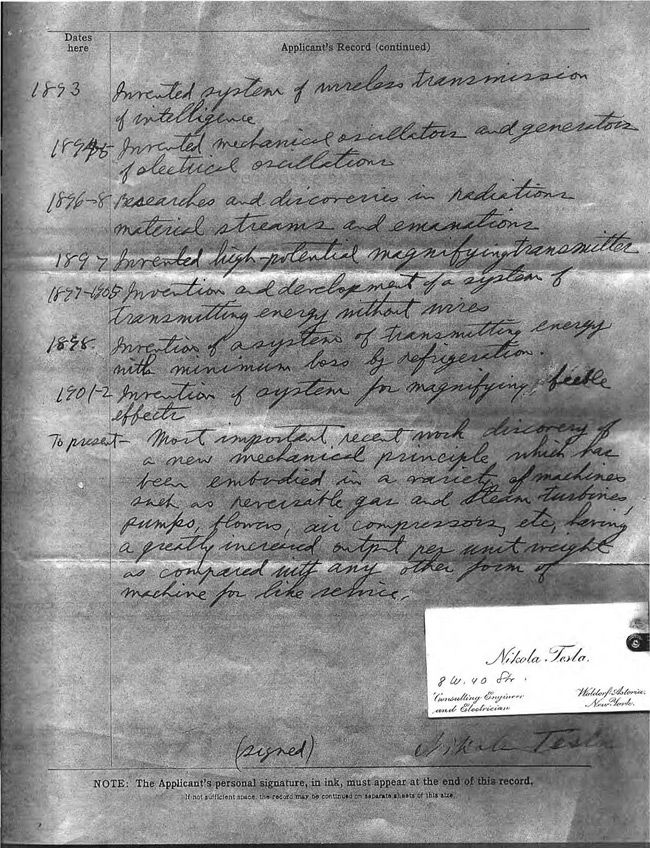 Dates
here
Applicant's Record (continued)
1893 Invented system of wireless transmission
of intelligence
1894-5 Invented mechanical oscillators and generators
of electrical oscillations
1896-8 Researches and discoveries in radiations
material streams and emanations
1897 Invented high-potential magnifying transmitter
1897-1905 Invention and development of a system of
transmitting energy without wires
1898. Invention of a system of transmitting energy
with minimum loss by refrigeration.
1901-2 Invention of system for magnifying feeble
effects
To present— Most important recent work discovery of
a new mechanical principle which has
been embodied in a variety of machines
such as reversable gas and steam turbines,
pumps, blowers, air compressors, etc, having
a greatly increased output per unit weight
as compared with any other form of
machine for like service.
Nikola Tesla.
8 W. 40 Str.
Consulting Engineer
and Electrician
Waldorf-Astoria,
New York.
(signed) Nikola Tesla
NOTE: The Applicant's personal signature, in ink, must appear at the end of this record.
If not sufficient space, the record may be continued on separate sheets of this size.